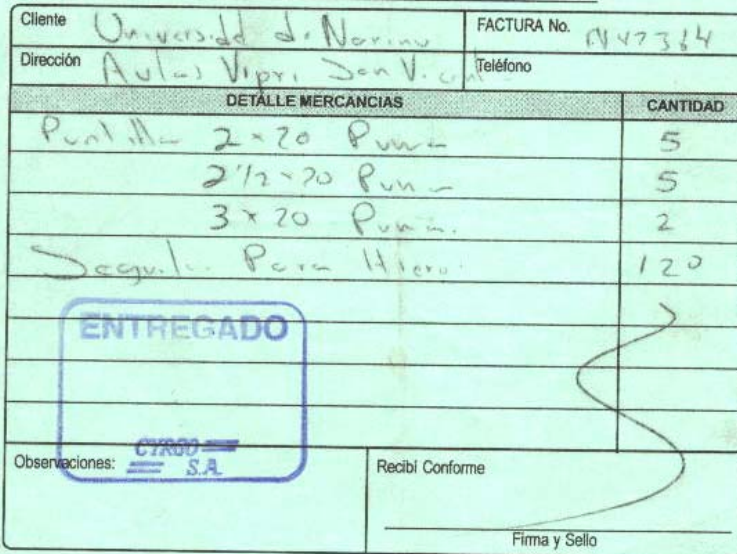 Cliente Universidd de Narino FACTURA No.
Dirección Aulas Vipri San Teléfono
DETALLE MERCANCIAS CANTIDAD
Puntilla 2 x 20 Puma 5
2 1/2 x 20 Puma 5
3 x 20 Puma. 2
Segueta Para Hierro 120
ENTREGADO
CYRGO
S.A.
Observaciones:
Recibí Conforme
Firma y Sello